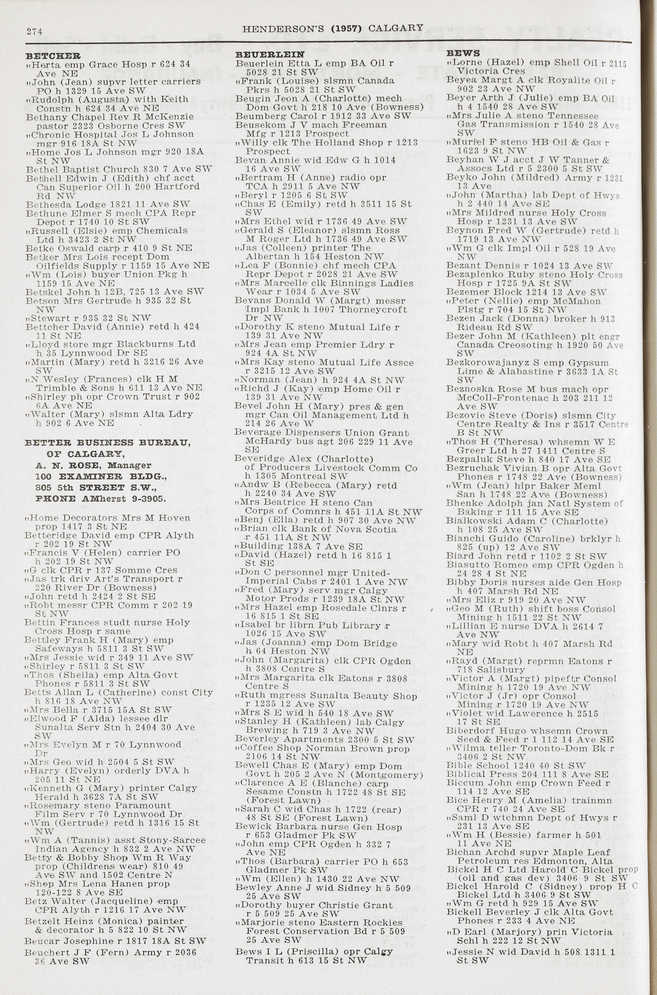 274
HENDERSON'S (1957) CALGARY
BETCHER
„Herta emp Grace Hosp r 624 34
Ave NE
„John (Jean) supvr letter carriers
PO h 1329 15 Ave SW
„Rudolph (Augusta) with Keith
Constn h 624 34 Ave NE
Bethany Chapel Rev R McKenzie
pastor 2323 Osborne Cres SW
„Chronic Hospital Jos L Johnson
mgr 916 18A St NW
„Home Jos L Johnson mgr 920 18A
St NW
Bethel Baptist Church 830 7 Ave SW
Bethell Edwin J (Edith) chf acct
Can Superior Oil h 200 Hartford
Rd NW
Bethesda Lodge 1821 11 Ave SW
Bethune Elmer S mech CPA Repr
Depot r 1740 10 St SW
„Russell (Elsie) emp Chemicals
Ltd h 3423 2 St NW
Betke Oswald carp r 410 9 St NE
Betker Mrs Lois recept Dom
Oilfields Supply r 1159 15 Ave NE
„Wm (Lois) buyer Union Pkg h
1159 15 Ave NE
Betskel John h 12B, 725 13 Ave SW
Betson Mrs Gertrude h 935 32 St
NW
„Stewart r 935 32 St NW
Bettcher David (Annie) retd h 424
11 St NE
„Lloyd store mgr Blackburns Ltd
h 35 Lynnwood Dr SE
„Martin (Mary) retd h 3216 26 Ave
SW
„N Wesley (Frances) clk H M
Trimble & Sons h 611 13 Ave NE
„Shirley ph opr Crown Trust r 902
6A Ave NE
„Walter (Mary) slsmn Alta Ldry
h 902 6 Ave NE
BETTER BUSINESS BUREAU,
OF CALGARY,
A. N. ROSE, Manager
100 EXAMINER BLDG.,
805 5th STREET S.W.,
PHONE AMherst 9-3905.
„Home Decorators Mrs M Hoven
prop 1417 3 St NE
Betteridge David emp CPR Alyth
r 202 19 St NW
„Francis V (Helen) carrier PO
h 202 19 St NW
„G clk CPR r 137 Somme Cres
„Jas trk driv Art's Transport r
220 River Dr (Bowness)
„John retd h 2424 2 St SE
„Robt messr CPR Comm r 202 19
St NW
Bettin Frances studt nurse Holy
Cross Hosp r same
Bettley Frank H (Mary) emp
Safeways h 5811 3 St SW
„Mrs Jessie wid r 349 11 Ave SW
„Shirley r 5811 3 St SW
„Thos (Sheila) emp Alta Govt
Phones r 5811 3 St SW
Betts Allan L (Catherine) const City
h 816 18 Ave NW
„Mrs Bella r 3715 15A St SW
„Elwood F (Alda) lessee dlr
Sunalta Serv Stn h 2404 30 Ave
SW
„Mrs Evelyn M r 70 Lynnwood
Dr
„Mrs Geo wid h 2504 5 St SW
„Harry (Evelyn) orderly DVA h
205 11 St NE
„Kenneth G (Mary) printer Calgy
Herald h 3628 7A St SW
„Rosemary steno Paramount
Film Serv r 70 Lynnwood Dr
„Wm (Gertrude) retd h 1316 15 St
NW
„Wm A (Tannis) asst Stony-Sarcee
Indian Agency h 832 2 Ave NW
Betty & Bobby Shop Wm R Way
prop (Childrens wear) 810 49
Ave SW and 1502 Centre N
„Shep Mrs Lena Hanen prop
120-122 8 Ave SE
Betz Walter (Jacqueline) emp
CPR Alyth r 1216 17 Ave NW
Betzelt Heinz (Monica) painter
& decorator h 5 822 10 St NW
Beucar Josephine r 1817 18A St SW
Beuchert J F (Fern) Army r 2036
36 Ave SW
BEUERLEIN
Beuerlein Etta L emp BA Oil r
5028 21 St SW
„Frank (Louise) slsmn Canada
Pkrs h 5028 21 St SW
Beugin Jeon A (Charlotte) mech
Dom Govt h 218 10 Ave (Bowness)
Beumberg Carol r 1912 33 Ave SW
Beusekom J V mach Freeman
Mfg r 1213 Prospect
„Willy clk The Holland Shop r 1213
Prospect
Bevan Annie wid Edw G h 1014
16 Ave SW
„Bertram H (Anne) radio opr
TCA h 2911 5 Ave NW
„Beryl r 1205 6 St SW
„Chas E (Emily) retd h 3511 15 St
SW
„Mrs Ethel wid r 1736 49 Ave SW
„Gerald S (Eleanor) slsmn Ross
M Roger Ltd h 1736 49 Ave SW
„Jas (Colleen) printer The
Albertan h 154 Heston NW
„Lea F (Bonnie) chf mech CPA
Repr Depot r 2028 21 Ave SW
„Mrs Marcelle clk Binnings Ladies
Wear r 1034 5 Ave SW
Bevans Donald W (Margt) messr
Impl Bank h 1007 Thorneycroft
Dr NW
„Dorothy K steno Mutual Life r
139 31 Ave NW
„Mrs Jean emp Premier Ldry r
924 4A St NW
„Mrs Kay steno Mutual Life Assce
r 3215 12 Ave SW
„Norman (Jean) h 924 4A St NW
„Richd J (Kay) emp Home Oil r
139 31 Ave NW
Bevel John H (Mary) pres & gen
mgr Can Oil Management Ltd h
214 26 Ave W
Beverage Dispensers Union Grant
McHardy bus agt 206 229 11 Ave
SE
Beveridge Alex (Charlotte)
of Producers Livestock Comm Co
h 1305 Montreal SW
„Andw B (Rebecca) (Mary) retd
h 2240 34 Ave SW
„Mrs Beatrice H steno Can
Corps of Comnrs h 451 11A St NW
„Benj (Ella) retd h 907 30 Ave NW
„Brian clk Bank of Nova Scotia
r 451 11A St NW
„Building 138A 7 Ave SE
„David (Hazel) retd h 16 815 1
St SE
„Don C personnel mgr United-
Imperial Cabs r 2401 1 Ave NW
„Fred (Mary) serv mgr Calgy
Motor Prods r 1239 18A St NW
„Mrs Hazel emp Rosedale Clnrs r
16 815 1 St SE
„Isabel br librn Pub Library r
1026 15 Ave SW
„Jas (Joanna) emp Dom Bridge
h 64 Heston NW
„John (Margarita) clk CPR Ogden
h 3808 Centre S
„Mrs Margarita clk Eatons r 3808
Centre S
„Ruth mgress Sunalta Beauty Shop
r 1235 12 Ave SW
„Mrs S E wid h 540 18 Ave SW
„Stanley H (Kathleen) lab Calgy
Brewing h 719 3 Ave NW
Beverley Apartments 2300 5 St SW
„Coffee Shop Norman Brown prop
2106 14 St NW
Bewell Chas E (Mary) emp Dom
Govt h 205 2 Ave N (Montgomery)
„Clarence A E (Blanche) carp
Sesame Constn h 1722 48 St SE
(Forest Lawn)
„Sarah C wid Chas h 1722 (rear)
48 St SE (Forest Lawn)
Bewick Barbara nurse Gen Hosp
r 653 Gladmer Pk SW
„John emp CPR Ogden h 332 7
Ave NE
„Thos (Barbara) carrier PO h 653
Gladmer Pk SW
„Wm (Ellen) h 1430 22 Ave NW
Bewley Anne J wid Sidney h 5 509
25 Ave SW
„Dorothy buyer Christie Grant
r 5 509 25 Ave SW
„Marjorie steno Eastern Rockies
Forest Conservation Bd r 5 509
25 Ave SW
Bews I L (Priscilla) opr Calgy
Transit h 613 15 St NW
BEWS
„Lorne (Hazel) emp Shell Oil r 2115
Victoria Cres
Beyea Margt A clk Royalite Oil r
902 23 Ave NW
Beyer Arth J (Julie) emp BA Oil
h 4 1540 28 Ave SW
„Mrs Julie A steno Tennessee
Gas Transmission r 1540 28 Ave
SW
„Muriel F steno HB Oil & Gas r
1623 9 St NW
Beyhan W J acct J W Tanner &
Assocs Ltd r 5 2300 5 St SW
Beyko John (Mildred) Army r 1231
13 Ave
„John (Martha) lab Dept of Hwys
h 2 440 14 Ave SE
„Mrs Mildred nurse Holy Cross
Hosp r 1231 13 Ave SW
Beynon Fred W (Gertrude) retd h
1719 13 Ave NW
„Wm G clk Impl Oil r 528 19 Ave
NW
Bezant Dennis r 1024 13 Ave SW
Bezaplenko Ruby steno Holy Cross
Hosp r 1725 9A St SW
Bezemer Block 1214 13 Ave SW
„Peter (Nellie) emp McMahon
Plstg r 704 15 St NW
Bezen Jack (Donna) broker h 913
Rideau Rd SW
Bezer John M (Kathleen) plt engr
Canada Creosoting h 1920 50 Ave
SW
Bezkorowajanyz S emp Gypsum
Lime & Alabastine r 3633 1A St
SW
Beznoska Rose M bus mach opr
McColl-Frontenac h 203 211 12
Ave SW
Bezovie Steve (Doris) slsmn City
Centre Realty & Ins r 3517 Centre
B St NW
„Thos H (Theresa) whsemn W E
Greer Ltd h 27 1411 Centre S
Bezpaluk Steve h 840 17 Ave SE
Bezruchak Vivian B opr Alta Govt
Phones r 1748 22 Ave (Bowness)
„Wm (Jean) hlpr Baker Meml
San h 1748 22 Ave (Bowness)
Bhenke Adolph jan Natl System of
Baking r 111 15 Ave SE
Bialkowski Adam C (Charlotte)
h 108 25 Ave SW
Bianchi Guido (Caroline) brklyr h
825 (up) 12 Ave SW
Biard John retd r 1102 2 St SW
Biasutto Romeo emp CPR Ogden h
24 28 4 St NE
Bibby Doris nurses aide Gen Hosp
h 407 Marsh Rd NE
„Mrs Eliz r 919 20 Ave NW
„Geo M (Ruth) shift boss Consol
Mining h 1511 22 St NW
„Lillian E nurse DVA h 2614 7
Ave NW
„Mary wid Robt h 407 Marsh Rd
NE
„Rayd (Margt) reprmn Eatons r
718 Salisbury
„Victor A (Margt) pipeftr Consol
Mining h 1720 19 Ave NW
„Victor J (Jr) opr Consol
Mining r 1720 19 Ave NW
„Violet wid Lawrence h 2515
17 St SE
Biberdorf Hugo whsemn Crown
Seed & Feed r 1 112 14 Ave SE
„Wilma teller Toronto-Dom Bk r
3406 2 St NW
Bible School 1240 40 St SW
Biblical Press 204 111 8 Ave SE
Biccum John emp Crown Feed r
114 12 Ave SE
Bice Henry M (Amelia) trainmn
CPR r 740 24 Ave SE
„Saml D wtchmn Dept of Hwys r
231 13 Ave SE
„Wm H (Bessie) farmer h 501
11 Ave NE
Bichan Archd supvr Maple Leaf
Petroleum res Edmonton, Alta
Bickel H C Ltd Harold C Bickel prop
(oil and gas dev) 3406 9 St SW
Bickel Harold C (Sidney) prop H C
Bickel Ltd h 3406 9 St SW
„Wm G retd h 929 15 Ave SW
Bickell Beverley J clk Alta Govt
Phones r 233 4 Ave NE
„D Earl (Marjory) prin Victoria
Schl h 222 12 St NW
„Jessie N wid David h 508 1311 1
St SW